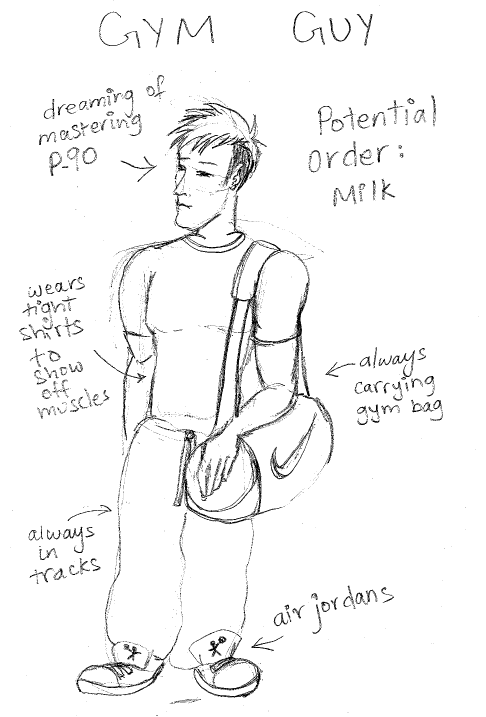 GYM GUY
dreaming of
mastering
P-90
Potential
order:
Milk
wears
tight
shirts
to
show
off
muscles
always
carrying
gym bag
always
in
tracks
air jordans